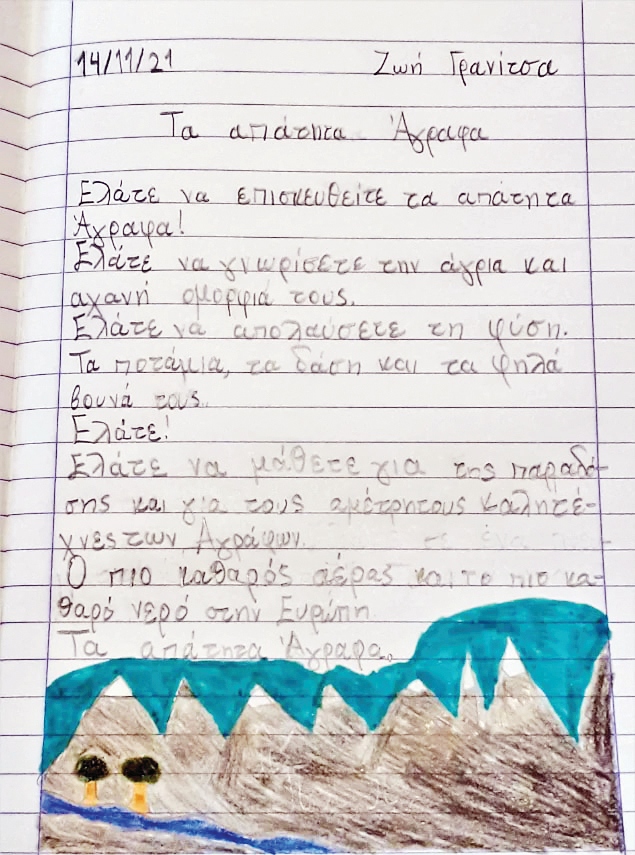 14/11/21 Ζωή Γρανίτσα
Τα απάτητα Άγραφα
Ελάτε να επισκευθείτε τα απάτητα
Άγραφα!
Ελάτε να γνωρίσετε την άγρια και
αχανή ομορφιά τους.
Ελάτε να απολαύσετε τη φύση.
Τα ποτάμια, τα δάση και τα ψηλά
βουνά τους.
Ελάτε!
Ελάτε να μάθετε για της παραδό-
σης και για τους αμέτρητους καλητέ-
χνες των Αγράφων.
Ο πιο καθαρός αέρας και το πιο κα-
θαρό νερό στην Ευρώπη
Τα απάτητα Άγραφα.